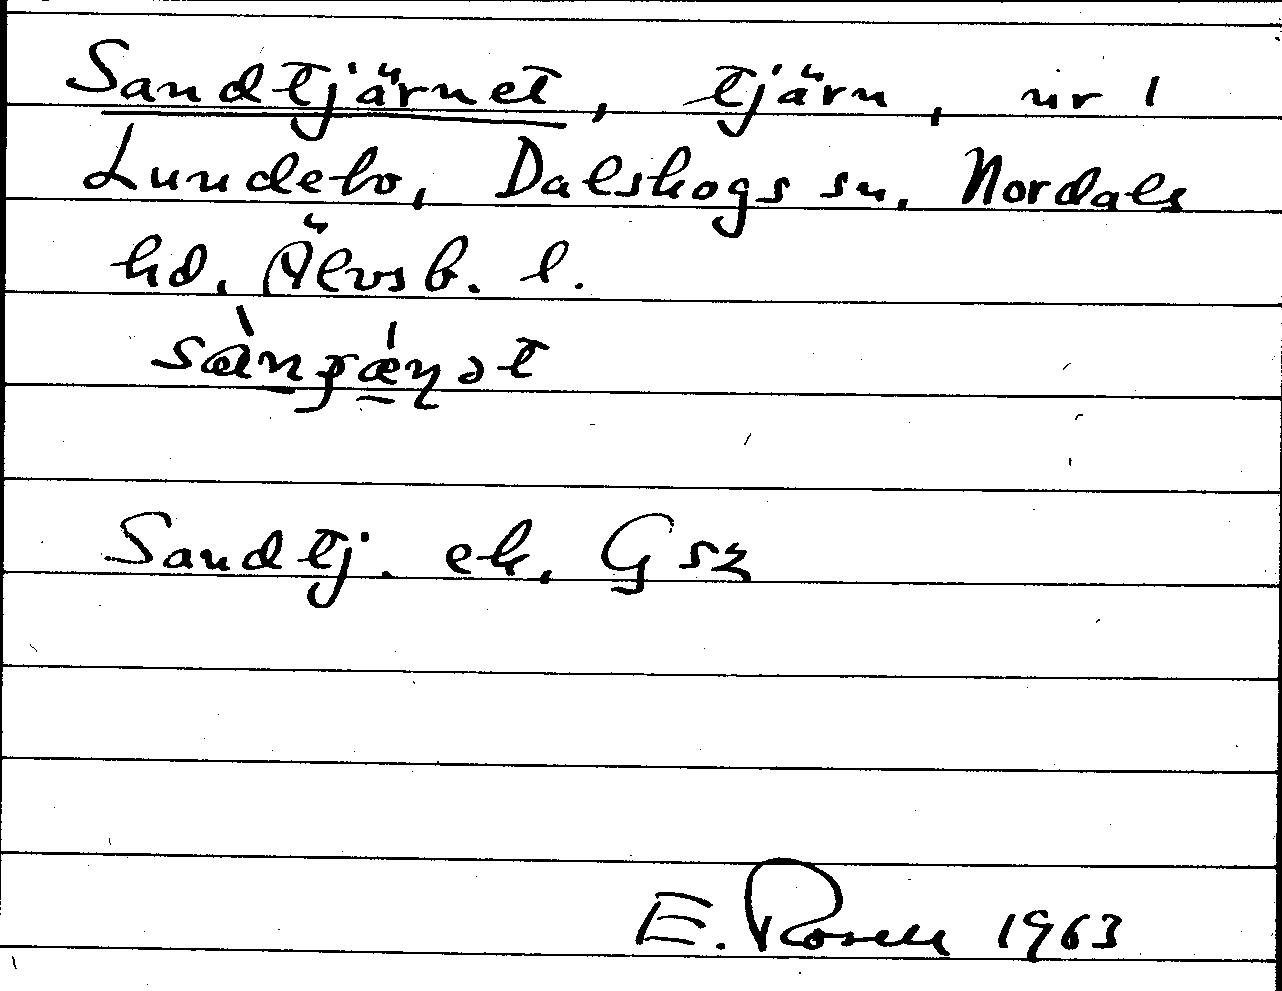 Sandtjärnet, tjärn, nr 1
Lundebo, Dalskogs sn, Nordals
hd. Älvsb. l.
Sandtj. ek. G sz
E. Rosell 1963